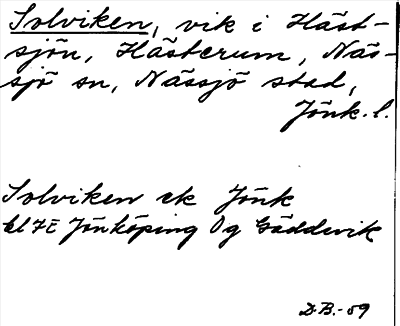 Solviken, vik i Häst-
sjön, Hästerum, Näs-
sjö sn, Nässjö stad,
Jönk. l.
Solviken ek Jönk
bl 7E Jönköping Og Gäddvik
D.B.-59